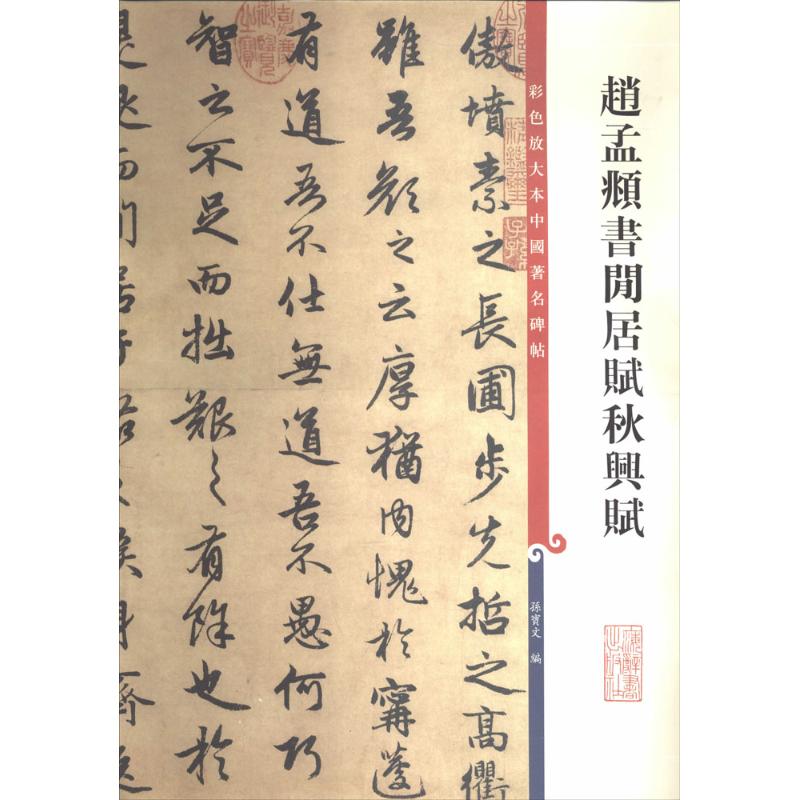 趙孟頫書閒居賦秋興賦
彩色放大本中國著名碑帖
孫寶文 編
傲墳素之長圃步先哲之高衢
雖吾顏之云厚猶內愧於甯蘧
有道吾不仕無道吾不愚何巧
智之不足而拙艱之有餘也於
是退而閒居于洛之涘身齊逸
嘉慶御覽之寶